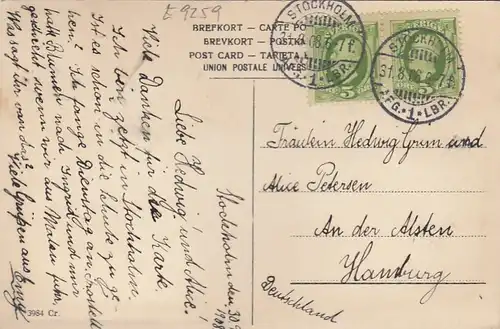 E 9259
BREFKORT – CARTE PO
BREVKORT – POSTKA
POST CARD – TARJETA
UNION POSTALE UNIVERS
STOCKHOLM
31.8.08.6-7 f.
AFG. 1 LBR.
SVERIGE
5
5
STOCKHOLM
31.8.08.6-7 f.
AFG. 1 LBR.
Stockholm den 30
1908
Liebe Hedwig und Alice!
Viele Danken für die Karte.
Ich bin jetzt in Stockholm.
Ist es schon in die Schule ge-
hen? Ich fange Dienstag an.
Ingrid und wir
Blumen nach
wenn wir aus
Was sagt ihr von das?
Viele Grüssen aus
Fräulein Hedwig Grim und
Alice Petersen
An der Alsten
Hamburg
Deutschland
3984 Cr.